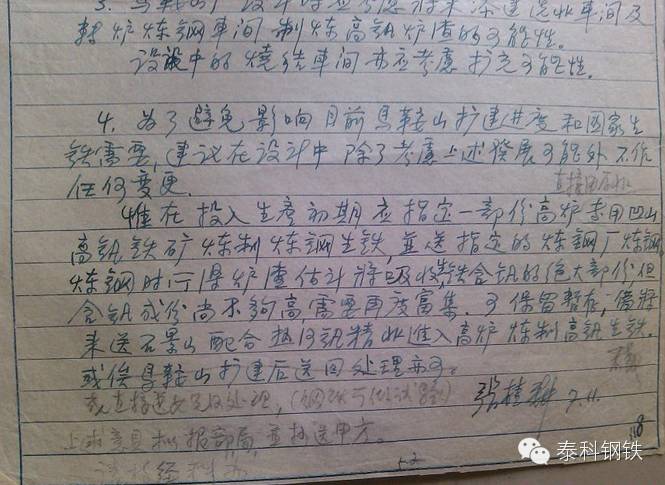 3. 马鞍山厂设计时应考虑将来添建选矿车间及
转炉炼钢车间制炼高钒炉渣的可能性。
设计中的烧结车间亦应考虑扩充可能性。
4. 为了避免影响目前马鞍山扩建进度和国家生
铁需要,建议在设计中除了考虑上述发展可能外不作
任何变更。
惟在投入生产初期应指定一部份高炉专用凹山
高钒铁矿炼制炼钢生铁,并送指定的炼钢厂炼钢,
炼钢时所得炉渣估计将吸收铁含钒的绝大部份,但
含钒成份尚不够高,需要再度富集。可保留暂存,俟将
来送石景山配合热河钒精矿进入高炉炼制高钒生铁。
或俟马鞍山扩建后送回处理亦可。
或直接送
张桂耕 7.11.
上述意见拟报部局,并抄送甲方。
118
泰科钢铁